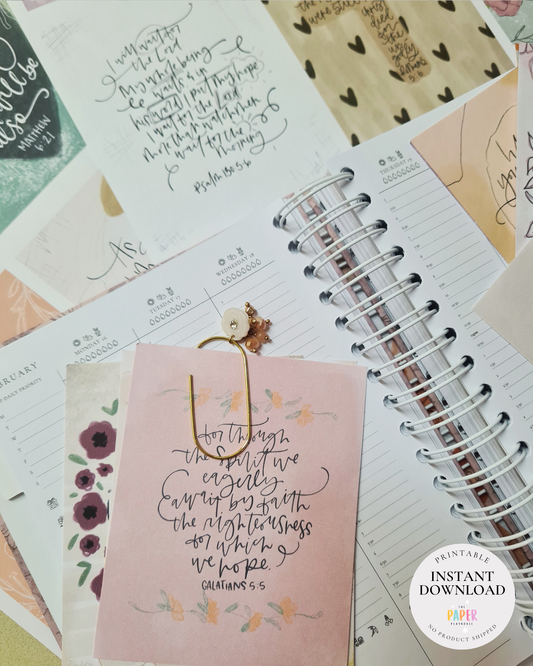 will be
also
MATTHEW
6:21
I will wait for
the Lord
My whole being
waits & in
his word I put my hope
I wait for the Lord
more than watchmen
wait for the
morning
Psalm 130:5-6
were still
Christ
died
for
the
5:6
THURSDAY 19
WEDNESDAY 18
TUESDAY 17
MONDAY 16
DAILY PRIORITY
for through
the Spirit we
eagerly
await by faith
the righteousness
for which
we hope.
GALATIANS 5:5
PRINTABLE
INSTANT
DOWNLOAD
THE
PAPER
PLAYHOUSE
NO PRODUCT SHIPPED